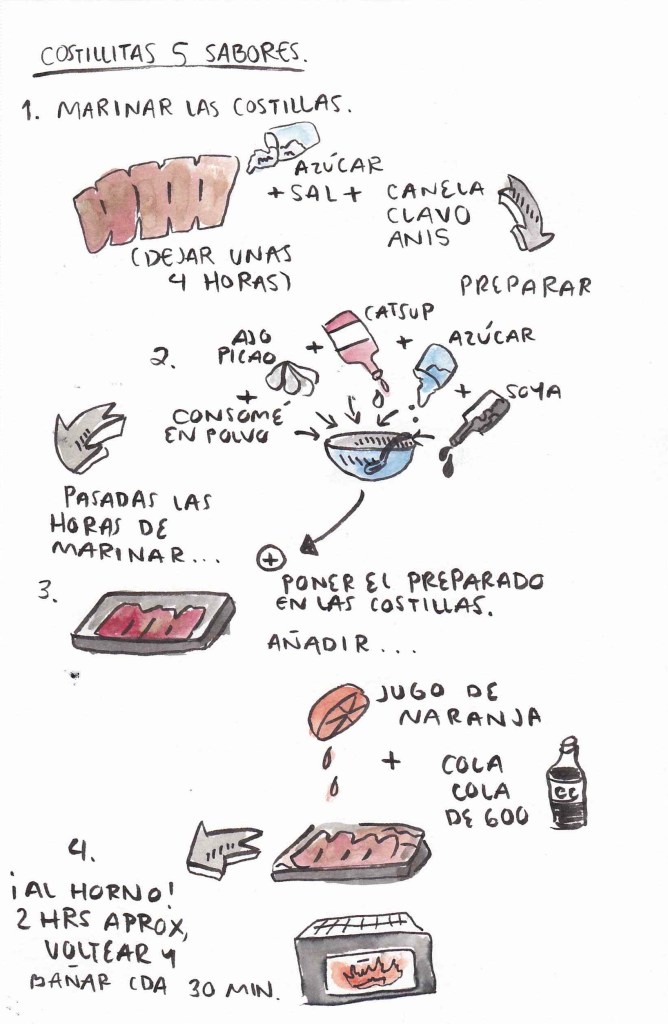 COSTILLITAS 5 SABORES.
1. MARINAR LAS COSTILLAS.
AZÚCAR
+ SAL +
CANELA
CLAVO
ANIS
(DEJAR UNAS
4 HORAS)
PREPARAR
2.
AJO
PICAO
+
CATSUP
+
AZÚCAR
+
SOYA
+
CONSOMÉ
EN POLVO
PASADAS LAS
HORAS DE
MARINAR...
3.
+
PONER EL PREPARADO
EN LAS COSTILLAS.
AÑADIR...
JUGO DE
NARANJA
+
COLA
COLA
DE 600
CC
4.
¡AL HORNO!
2 HRS APROX,
VOLTEAR Y
BAÑAR CDA 30 MIN.